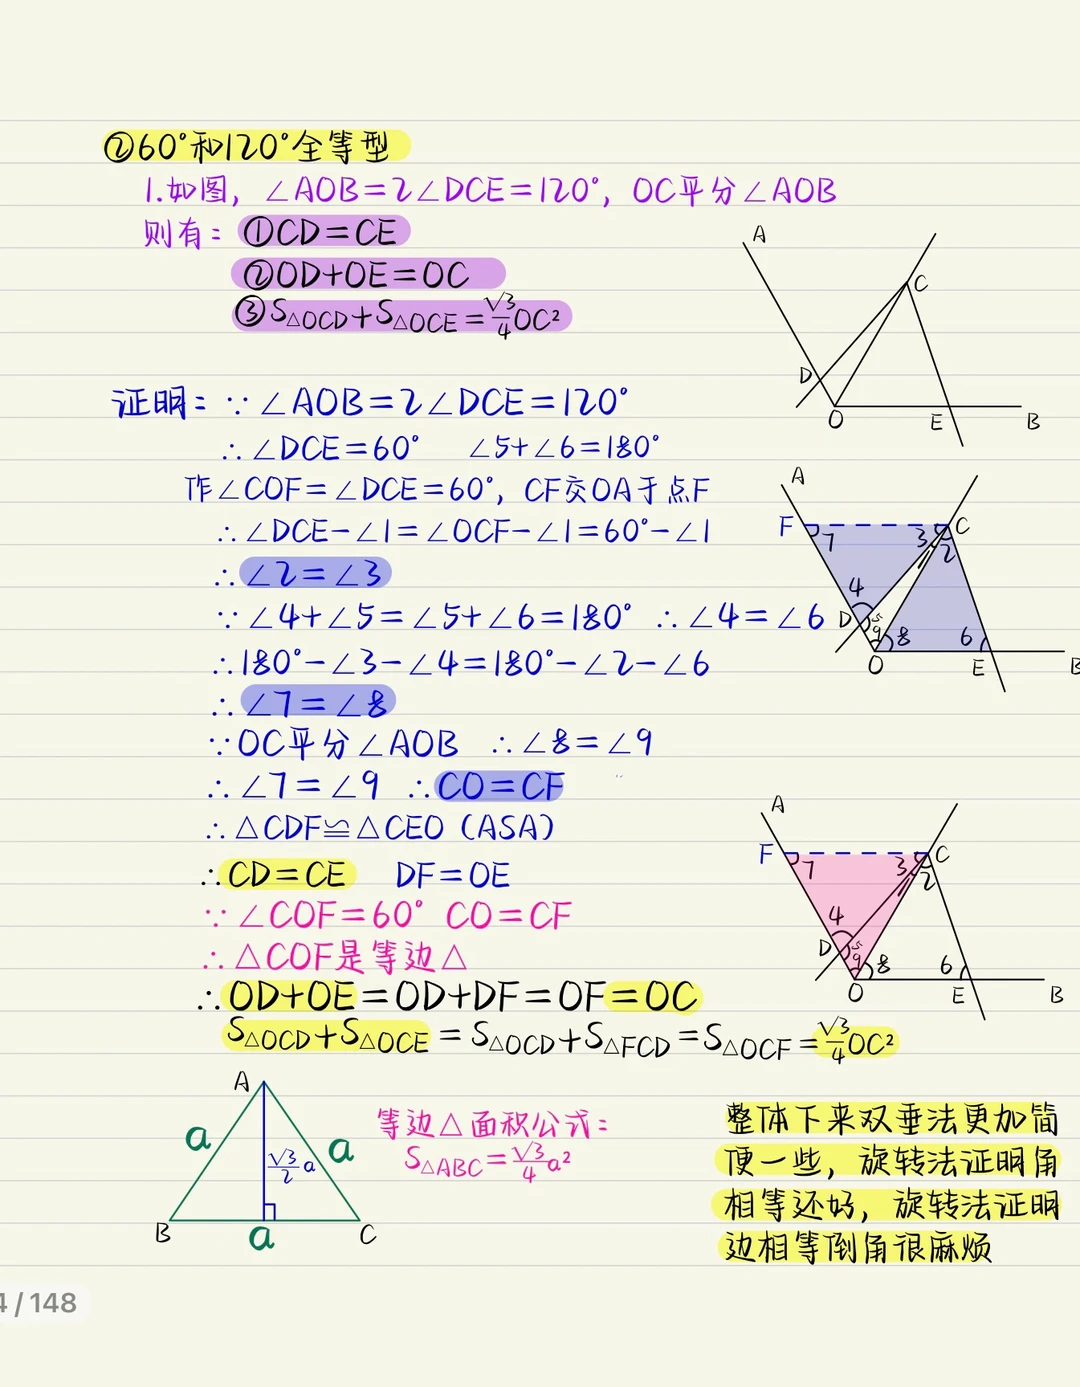 ②60°和120°全等型
1.如图，∠AOB=2∠DCE=120°，OC平分∠AOB
则有：①CD=CE
②OD+OE=OC
③S△OCD+S△OCE=√3/4OC²
A
C
D
O
E
B
证明：∵∠AOB=2∠DCE=120°
∴∠DCE=60° ∠5+∠6=180°
作∠COF=∠DCE=60°，CF交OA于点F
∴∠DCE-∠1=∠OCF-∠1=60°-∠1
∴∠2=∠3
∵∠4+∠5=∠5+∠6=180° ∴∠4=∠6
∴180°-∠3-∠4=180°-∠2-∠6
∴∠7=∠8
∵OC平分∠AOB ∴∠8=∠9
∴∠7=∠9 ∴CO=CF
∴△CDF≌△CEO（ASA）
∴CD=CE DF=OE
∵∠COF=60° CO=CF
∴△COF是等边△
∴OD+OE=OD+DF=OF=OC
S△OCD+S△OCE=S△OCD+S△FCD=S△OCF=√3/4OC²
A
F
7
3
C
1
2
4
D
5
9
8
6
O
E
B
A
F
7
3
C
1
2
4
D
5
9
8
6
O
E
B
A
a
√3/2a
a
B
a
C
等边△面积公式：
S△ABC=√3/4a²
整体下来双垂法更加简
便一些，旋转法证明角
相等还好，旋转法证明
边相等倒角很麻烦
4/148